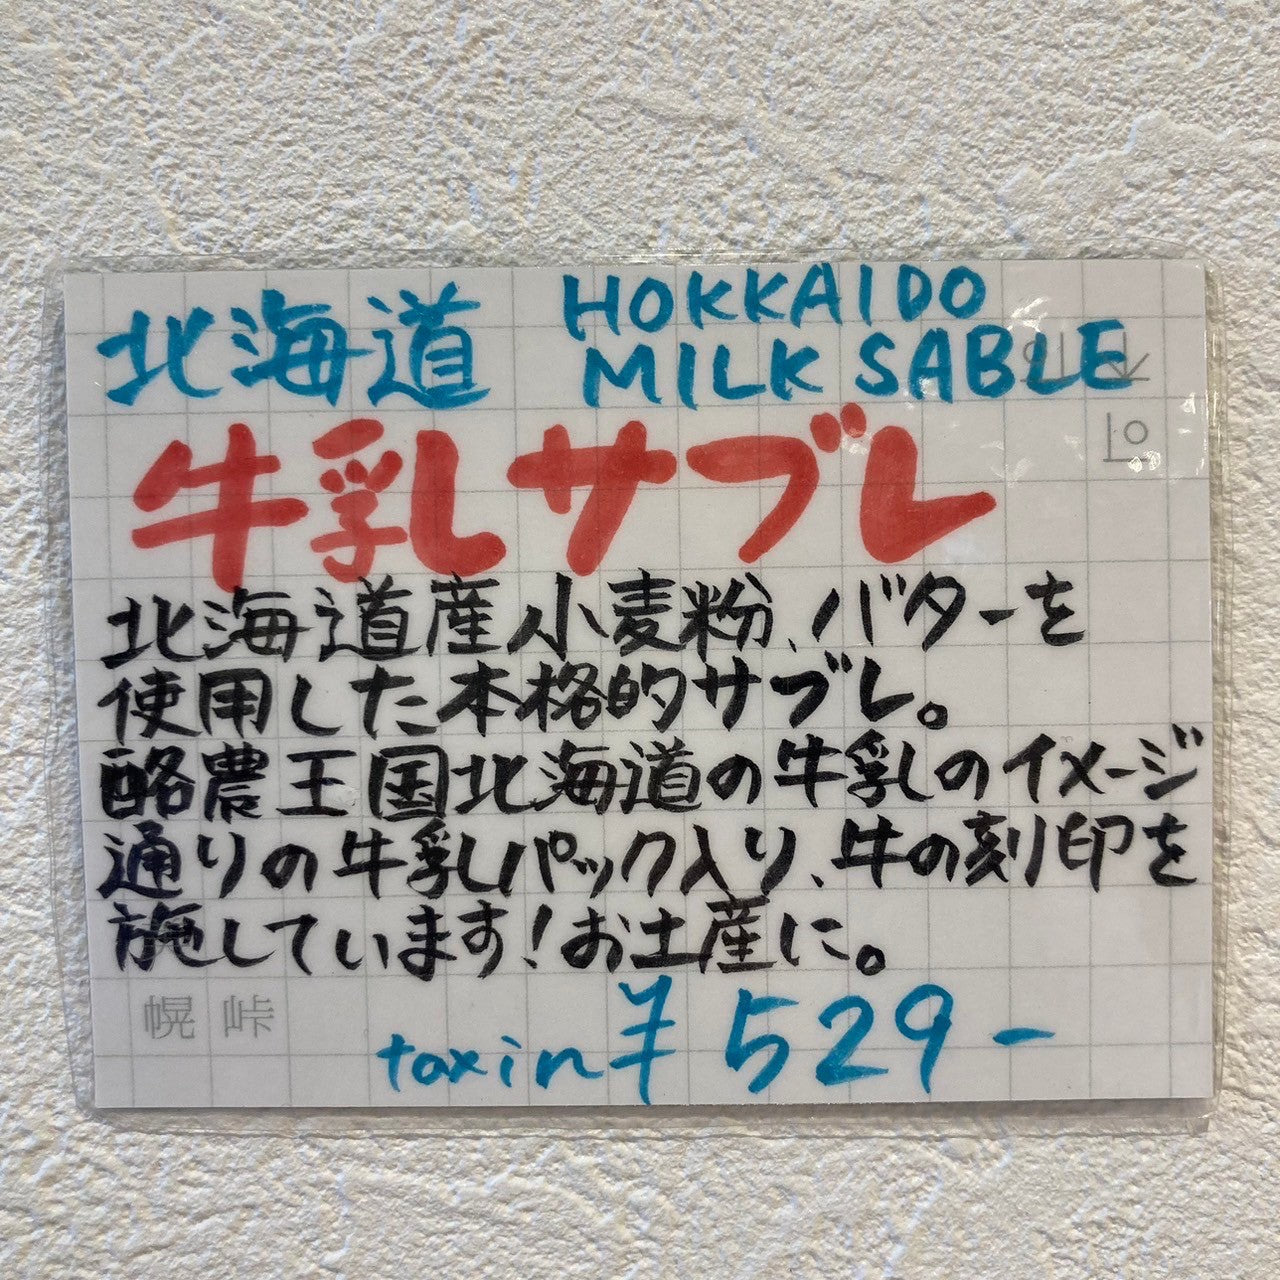 北海道
HOKKAIDO
MILK SABLE
牛乳サブレ
北海道産小麦粉、バターを
使用した本格的サブレ。
酪農王国北海道の牛乳のイメージ
通りの牛乳パック入り、牛の刻印を
施しています!お土産に。
幌 峠
taxin ¥529-